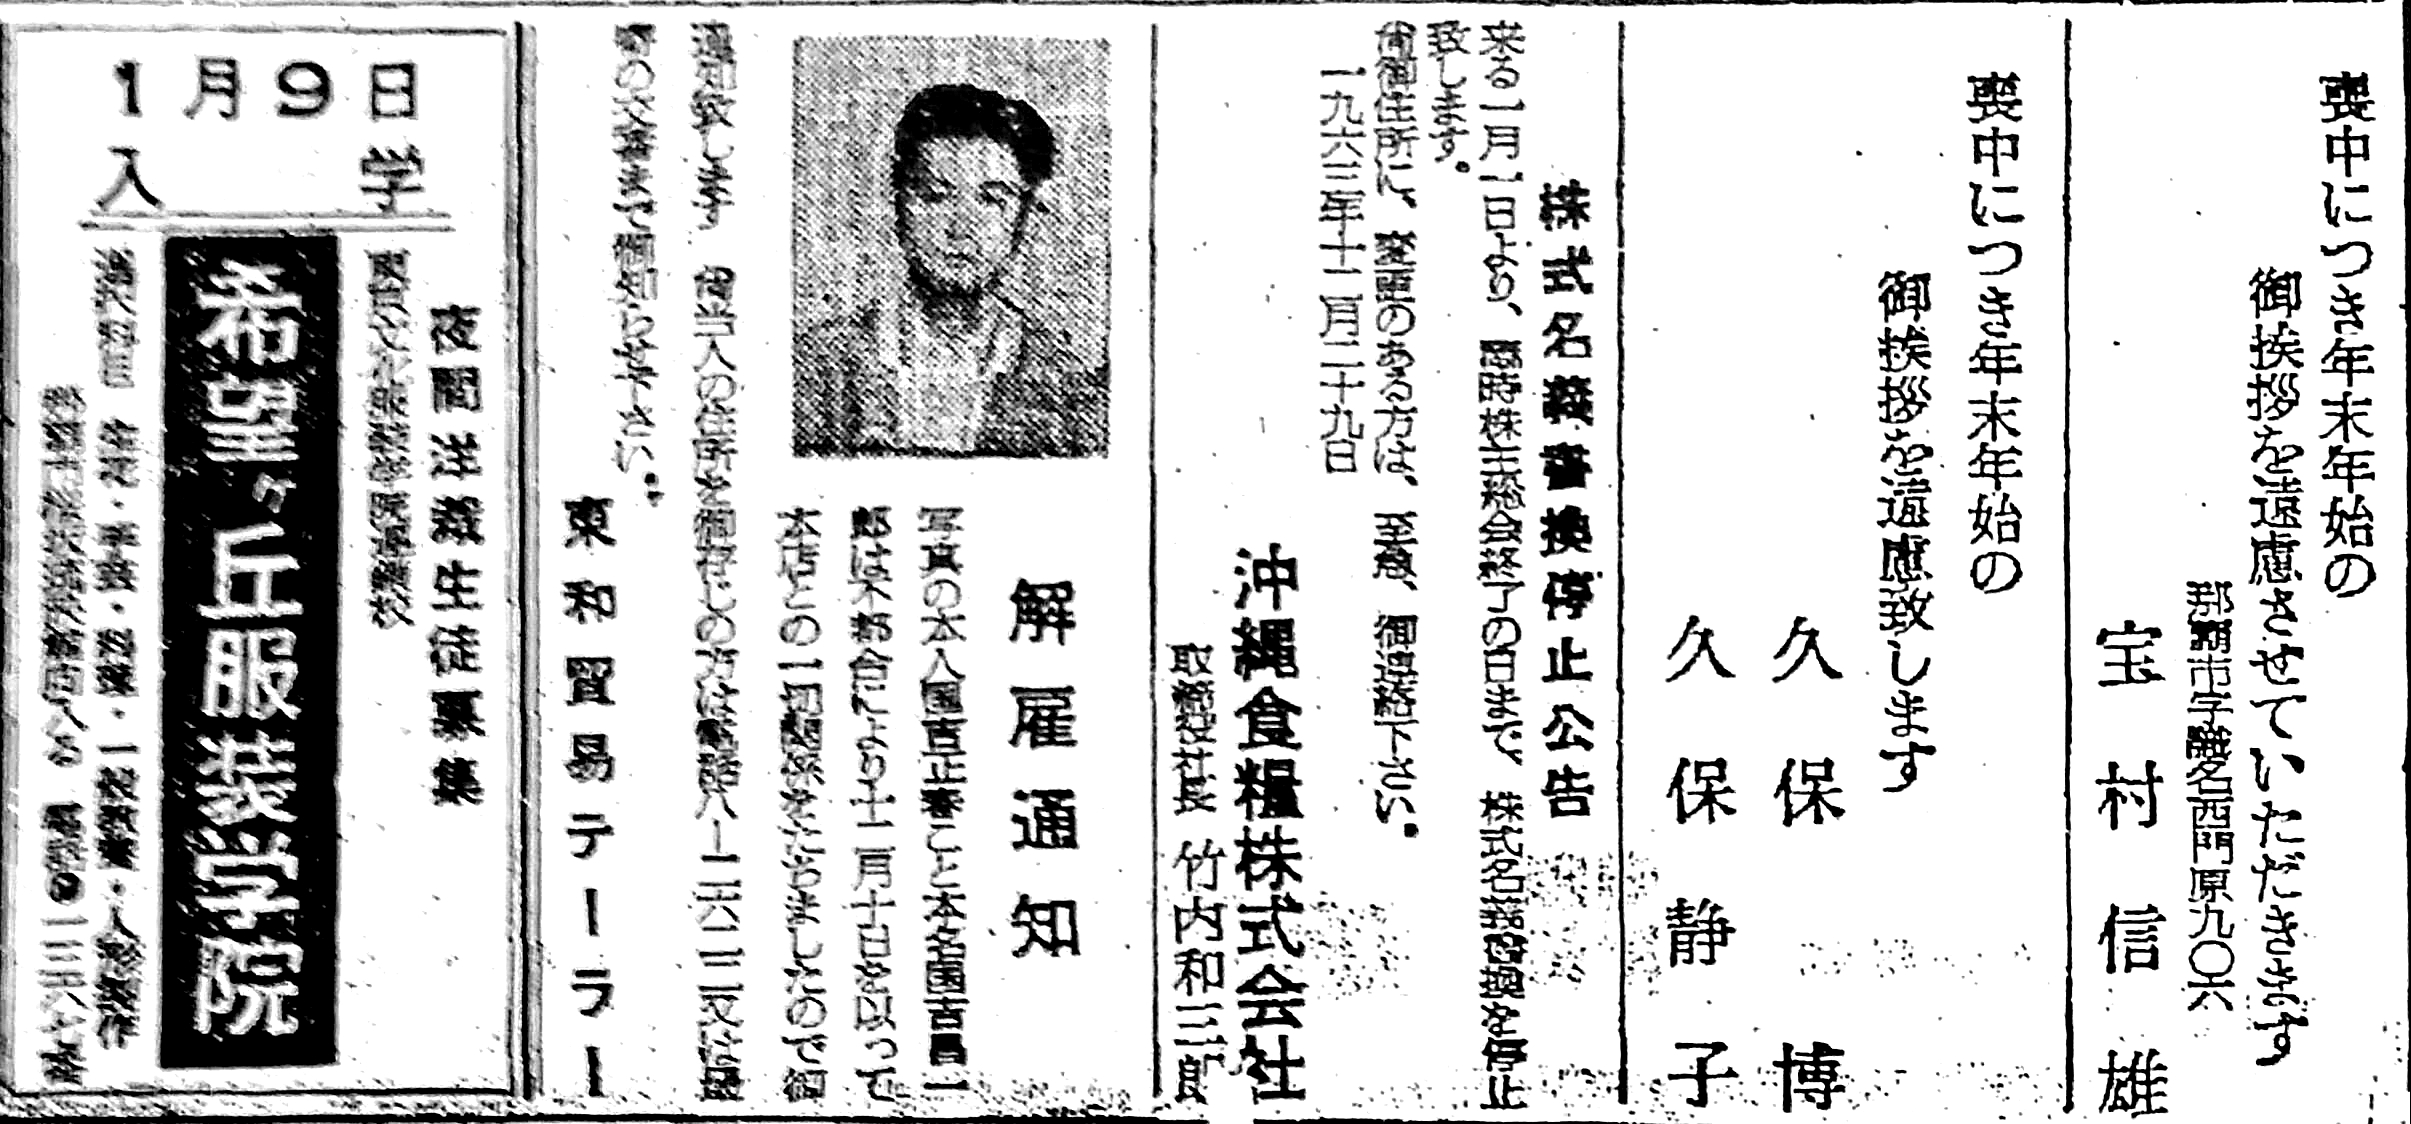 喪中につき年末年始の
御挨拶を遠慮させていただきます
那覇市字識名西門原九〇六
宝村信雄
喪中につき年末年始の
御挨拶を遠慮致します
久保博
久保静子
株式名義書換停止公告
来る一月一日より、臨時株主総会終了の日まで、株式名義書換を停止
致します。
尚御住所に、変更のある方は、至急、御連絡下さい。
一九六三年十二月二十九日
沖縄食糧株式会社
取締役社長 竹内和三郎
解雇通知
写真の本人国吉正春こと本名国吉昌一
郎は不都合により十二月十日を以って
本店との一切関係をたちましたので御
通知致します 尚当人の住所を御存じの方は
東和貿易テーラー
1月9日
入学
夜間洋裁生徒募集
希望ヶ丘服装学院